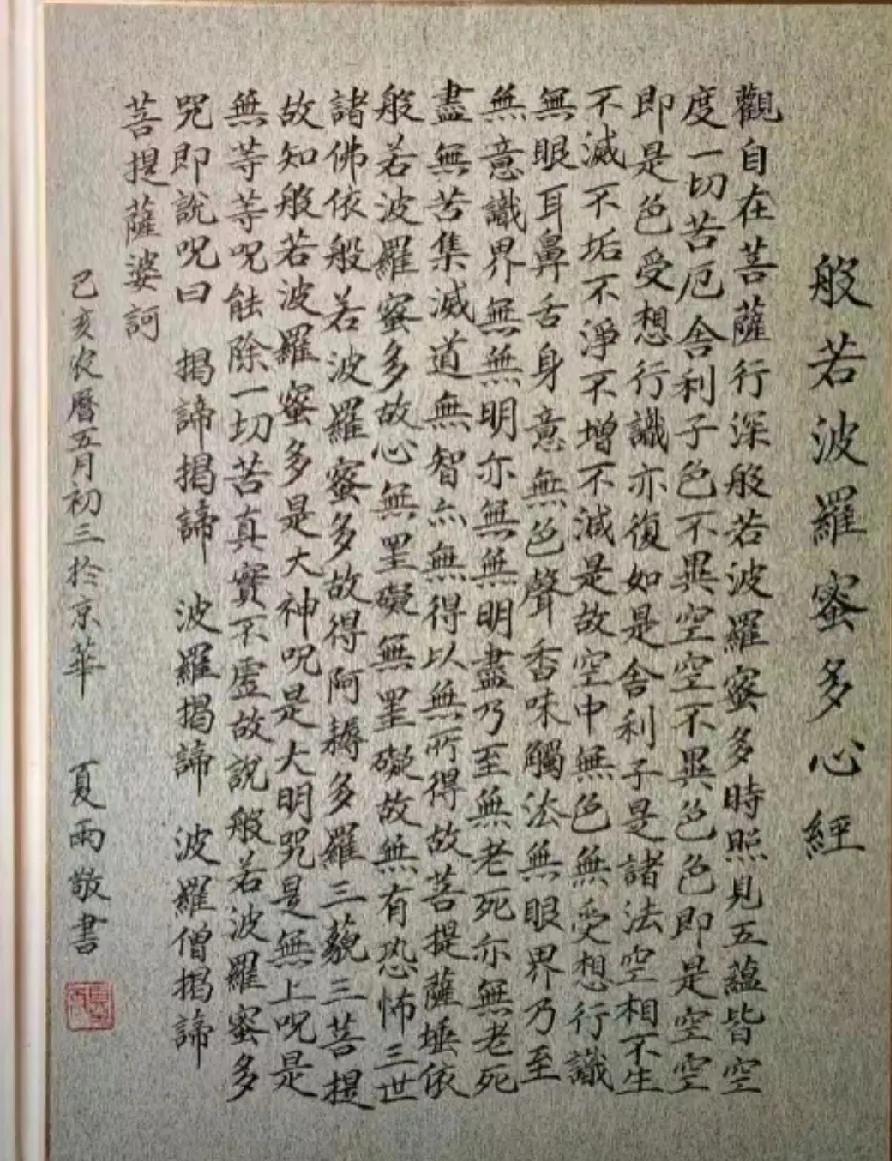 般若波羅蜜多心經
觀自在菩薩行深般若波羅蜜多時照見五蘊皆空
度一切苦厄舍利子色不異空空不異色色即是空空
即是色受想行識亦復如是舍利子是諸法空相不生
不滅不垢不淨不增不減是故空中無色無受想行識
無眼耳鼻舌身意無色聲香味觸法無眼界乃至
無意識界無無明亦無無明盡乃至無老死亦無老死
盡無苦集滅道無智亦無得以無所得故菩提薩埵依
般若波羅蜜多故心無罣礙無罣礙故無有恐怖三世
諸佛依般若波羅蜜多故得阿耨多羅三藐三菩提
故知般若波羅蜜多是大神呪是大明咒是無上呪是
無等等呪能除一切苦真實不虛故說般若波羅蜜多
咒即說呪曰 揭諦揭諦 波羅揭諦 波羅僧揭諦
菩提薩婆訶
己亥农曆五月初三於京華 夏雨敬書